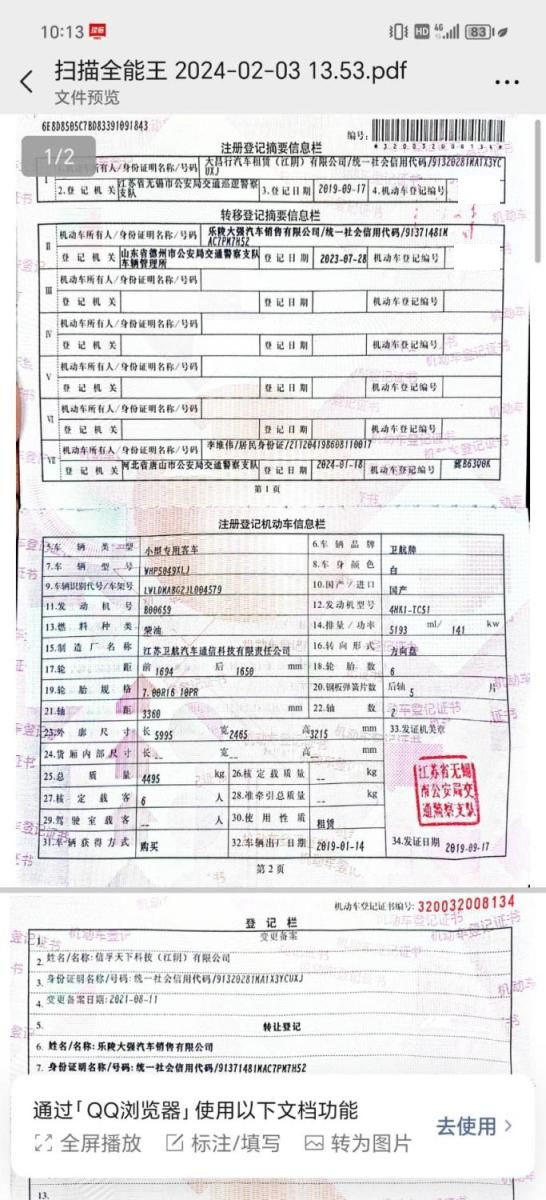 10:13
HD 4G 83
扫描全能王 2024-02-03 13.53.pdf
文件预览
6E8D8505C78D83391091843
1/2
编号:
*320032008134*
注册登记摘要信息栏
I 1.机动车所有人/身份证明名称/号码 大昌行汽车租赁(江阴)有限公司/统一社会信用代码/91320281MA1X3YCUXJ
2.登记机关 江苏省无锡市公安局交通巡逻警察支队 3.登记日期 2019-09-17 4.机动车登记编号
转移登记摘要信息栏
II 机动车所有人/身份证明名称/号码 乐陵大强汽车销售有限公司/统一社会信用代码/91371481MAC7PM7H52
登记机关 山东省德州市公安局交通警察支队车辆管理所 登记日期 2023-07-28 机动车登记编号
III 机动车所有人/身份证明名称/号码
登记机关 登记日期 机动车登记编号
IV 机动车所有人/身份证明名称/号码
登记机关 登记日期 机动车登记编号
V 机动车所有人/身份证明名称/号码
登记机关 登记日期 机动车登记编号
VI 机动车所有人/身份证明名称/号码
登记机关 登记日期 机动车登记编号
VII 机动车所有人/身份证明名称/号码 李维伟/居民身份证/211204198608110017
登记机关 河北省唐山市公安局交通警察支队 登记日期 2024-01-18 机动车登记编号 冀B63Q0K
第1页
注册登记机动车信息栏
5.车辆类型 小型专用客车 6.车辆品牌 卫航牌
7.车辆型号 WHP5049XLJ 8.车身颜色 白
9.车辆识别代号/车架号 LWLDMABG2JL004579 10.国产/进口 国产
11.发动机号 B00659 12.发动机型号 4HK1-TC51
13.燃料种类 柴油 14.排量/功率 5193 ml/ 141 kw
15.制造厂名称 江苏卫航汽车通信科技有限责任公司 16.转向形式 方向盘
17.轮距 前 1694 后 1650 mm 18.轮胎数 6
19.轮胎规格 7.00R16 10PR 20.钢板弹簧片数 后轴 5 片
21.轴距 3360 mm 22.轴数 2
23.外廓尺寸 长 5995 宽 2465 高 3215 mm 33.发证机关章
24.货厢内部尺寸 长 -- 宽 -- 高 -- mm
25.总质量 4495 kg 26.核定载质量 -- kg
27.核定载客 6 人 28.准牵引总质量 -- kg
29.驾驶室载客 -- 人 30.使用性质 租赁
31.车辆获得方式 购买 32.车辆出厂日期 2019-01-14 34.发证日期 2019-09-17
江苏省无锡
市公安局交
通警察支队
第2页
机动车登记证书编号: 320032008134
登记栏
1. 变更备案
2. 姓名/名称:信孚天下科技(江阴)有限公司
3. 身份证明名称/号码:统一社会信用代码/91320281MA1X3YCUXJ
4. 变更备案日期:2021-08-11
5. 转让登记
6. 姓名/名称:乐陵大强汽车销售有限公司
7. 身份证明名称/号码:统一社会信用代码/91371481MAC7PM7H52
通过「QQ浏览器」使用以下文档功能
去使用 >
全屏播放 标注/填写 转为图片
13.